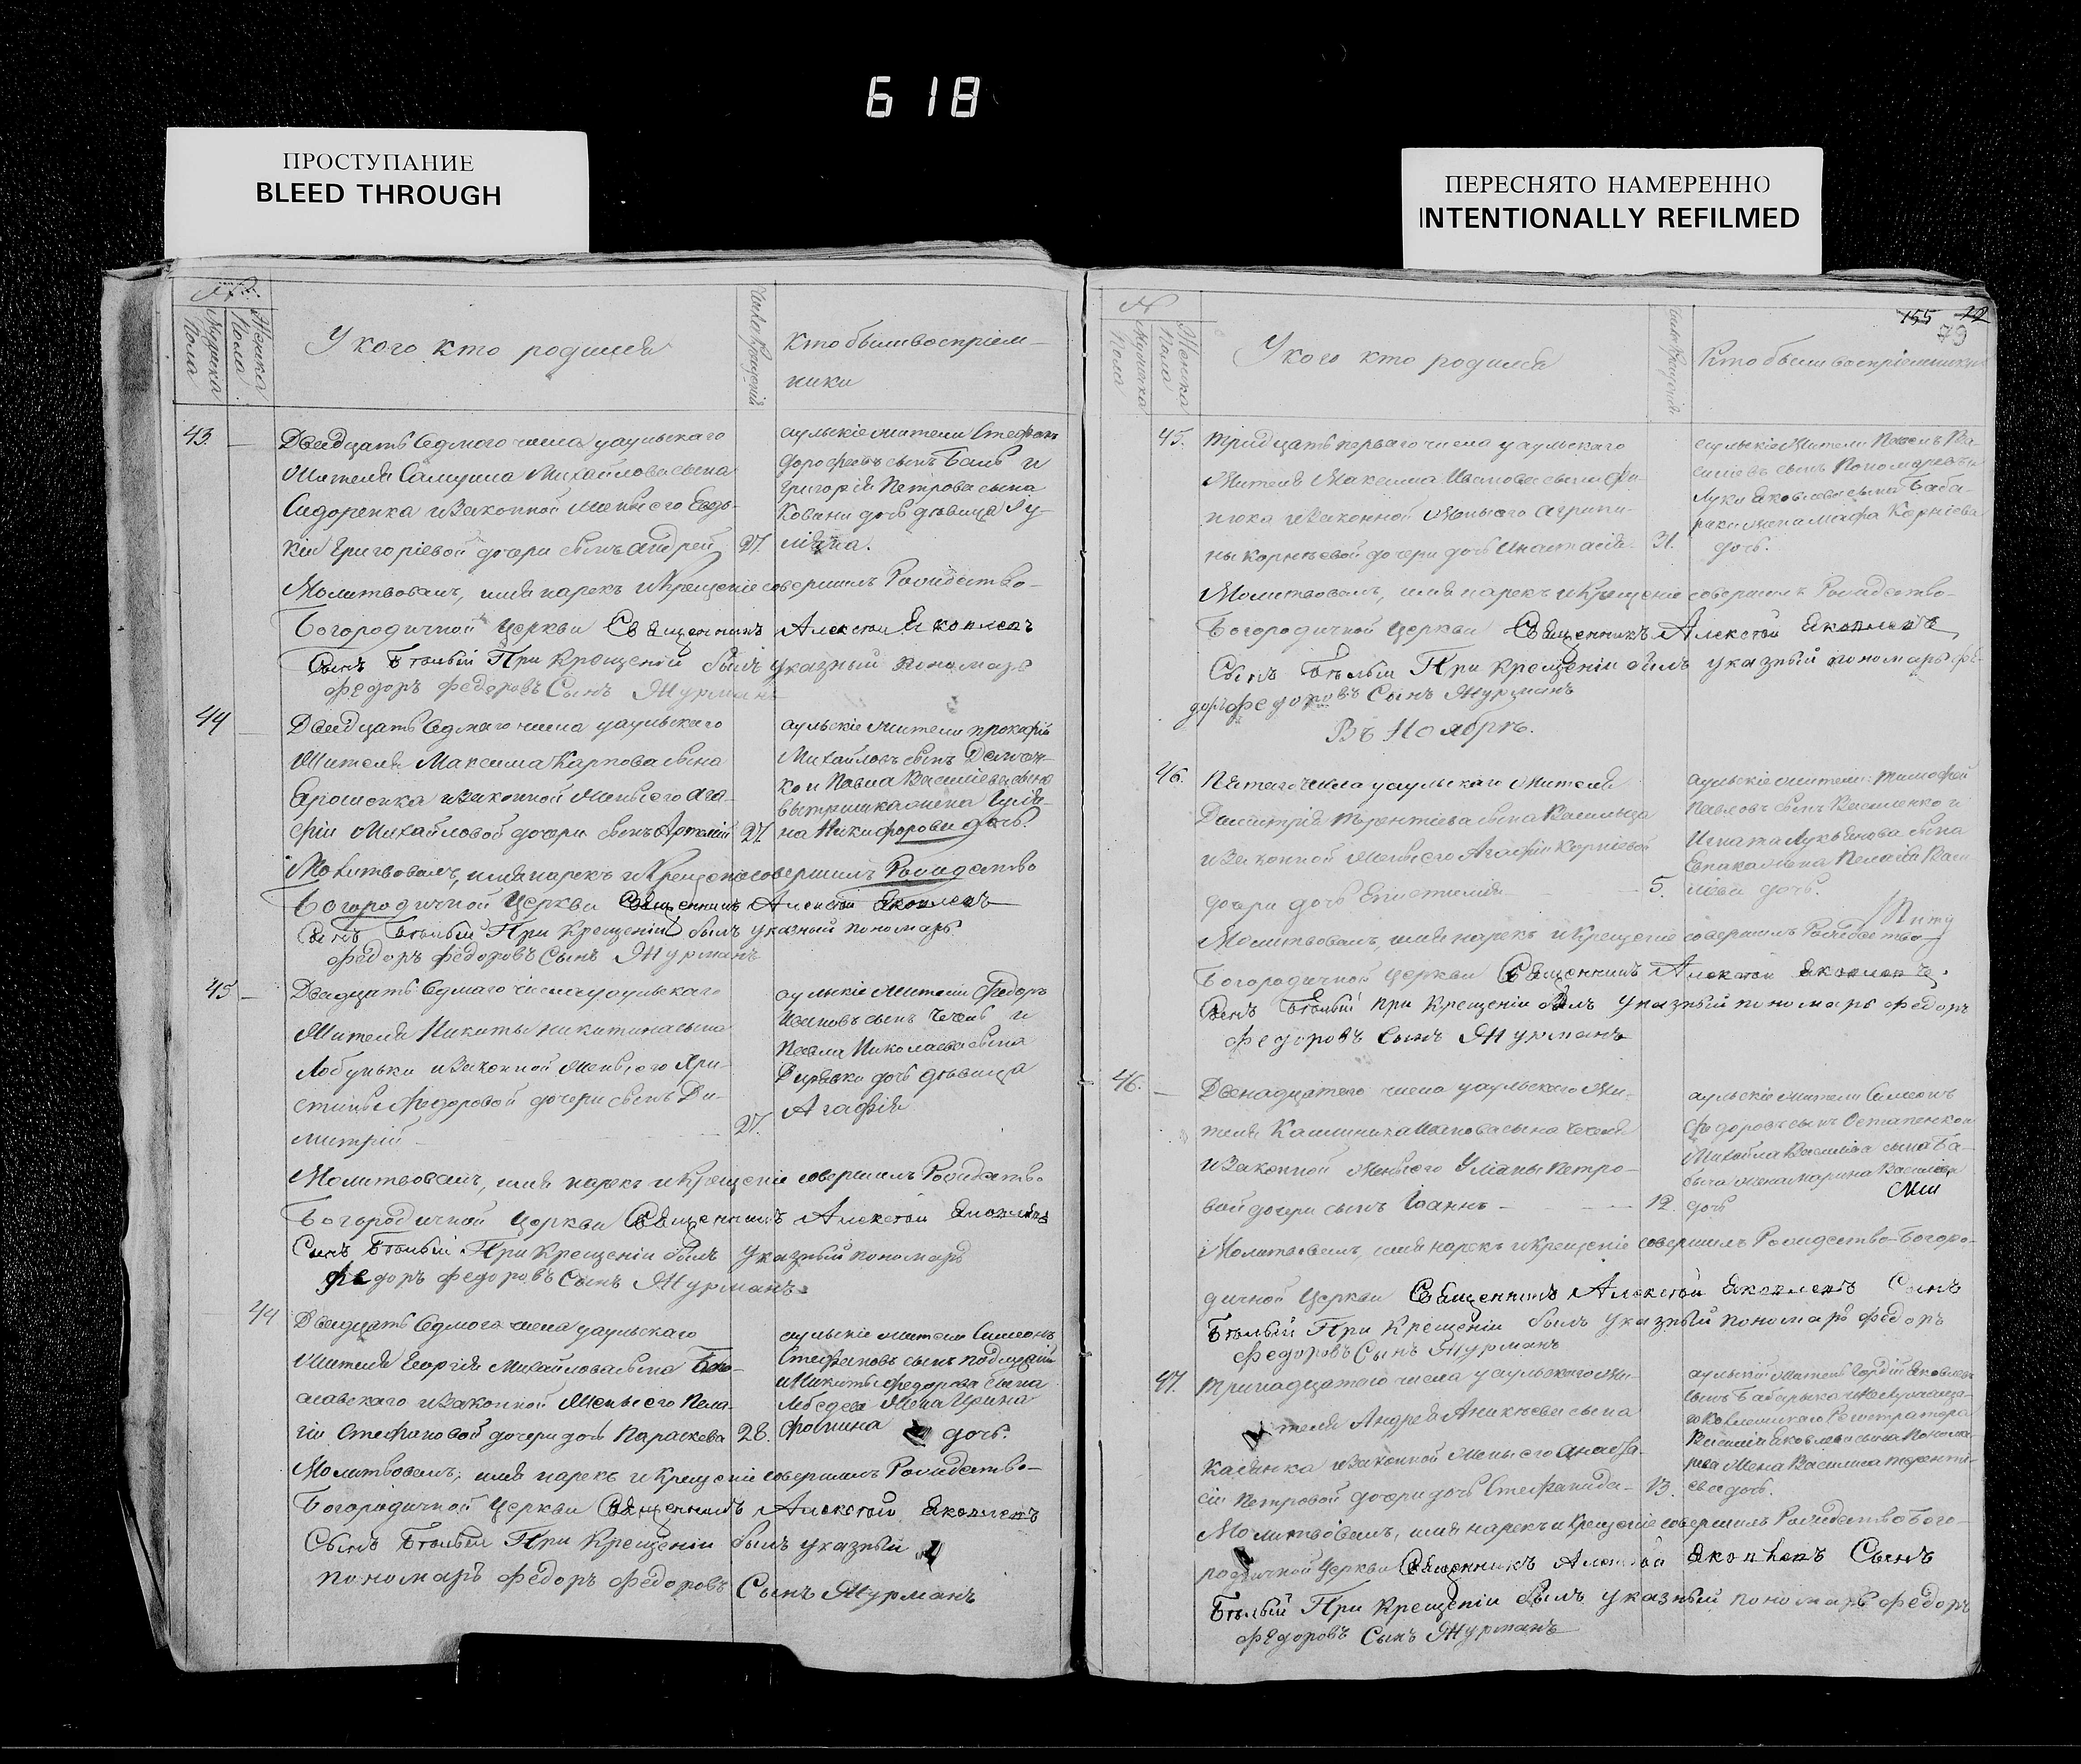 618
ПРОСТУПАНИЕ
BLEED THROUGH
ПЕРЕСНЯТО НАМЕРЕННО
INTENTIONALLY REFILMED
№
Мужеска Пола
Женска Пола
У кого кто родился
Число Крещений
Кто были воспріем-
ники
43
Двадцать Седмого числа у аульскаго
жителя Самуила Михайлова сына
Сидоренка и Законной жены его Евдо-
кіи Григоріевой дочери сынъ Андрей
27.
аульскіе жители Стефанъ
Дорофеевъ сынъ и
Григорія Петрова сына
дочь девица
Молитвовалъ, имя нарекъ и Крещеніе совершилъ Рождество-
Богородичной Церкви Священникъ Алексѣй Яковлевъ
Сынъ Бѣлый При Крещеніи былъ указный пономарь
Федоръ Федоровъ Сынъ Журманъ
44
Двадцать Седмаго числа у аульскаго
жителя Максима Карпова сына
Ярошенка и Законной жены его Ага-
фіи Михайловой дочери сынъ Артемій
27.
аульскіе жители Прокофій
Михайловъ сынъ
и Павла Василіева сына
жена
на Никифорова дочь.
Молитвовалъ, имя нарекъ и Крещеніе совершилъ Рождество
Богородичной Церкви Священникъ Алексѣй Яковлевъ
Сынъ Бѣлый При Крещеніи былъ указный пономарь
Федоръ Федоровъ Сынъ Журманъ
45
Двадцать Седмаго числа у аульскаго
жителя Никиты Никитина сына
Лобунька и Законной жены его Хри-
стины Федоровой дочери сынъ Ди-
митрій
27.
аульскіе жители Федоръ
Ивановъ сынъ и
Павла Николаева сына
дочь девица
Агафія
Молитвовалъ, имя нарекъ и Крещеніе совершилъ Рождество
Богородичной Церкви Священникъ Алексѣй Яковлевъ
Сынъ Бѣлый При Крещеніи былъ указный пономарь
Федоръ Федоровъ Сынъ Журманъ
44
Двадцать Седмого числа у аульскаго
жителя Георгія Михайлова сына
и Законной жены его Пела-
гіи Стефановой дочери дочь Параскева
28.
аульскіе жители Симеонъ
Стефановъ сынъ
и Никиты Федорова сына
Лебедева жена Ирина
Фомина дочь.
Молитвовалъ, имя нарекъ и Крещеніе совершилъ Рождество-
Богородичной Церкви Священникъ Алексѣй Яковлевъ
Сынъ Бѣлый При Крещеніи былъ указный
пономарь Федоръ Федоровъ Сынъ Журманъ
155
79
№
Мужеска Пола
Женска Пола
У кого кто родился
Число Крещенія
Кто были воспріемники
45.
Тридцать перваго числа у аульскаго
жителя Максима Иванова сына
и Законной жены его Агрипи-
ны Корнѣевой дочери дочь Анастасія
31.
аульскіе жители Павелъ Ва-
силіевъ сынъ Пономаревъ и
Луки Яковлева сына Баба-
рики жена Марфа Корніева
дочь.
Молитвовалъ, имя нарекъ и Крещеніе совершилъ Рождество-
Богородичной Церкви Священникъ Алексѣй Яковлевъ
Сынъ Бѣлый При Крещеніи былъ указный пономарь Фе-
доръ Федоровъ Сынъ Журманъ
Въ Ноябрѣ.
46.
Пятаго числа у аульскаго жителя
Димитрія Терентіева сына
и Законной жены его Агафіи Корніевой
дочери дочь Епистимія
5.
аульскіе жители: Тимофей
Павловъ сынъ Василенко и
Игната Лукьянова сына
жена Пелагія Васи-
ліева дочь.
Молитвовалъ, имя нарекъ и Крещеніе совершилъ Рождество-
Богородичной Церкви Священникъ Алексѣй Яковлевъ
Сынъ Бѣлый при Крещеніи былъ указный пономарь Федоръ
Федоровъ Сынъ Журманъ
46.
Двенадцатого числа у аульскаго жи-
теля Калиника Иванова сына
и Законной жены его Уліаны Петро-
вой дочери сынъ Іоаннъ
12.
аульскіе жители Симеонъ
Федоровъ сынъ Остапенко и
Михайла Василіева сына
жена Марина Василіева
дочь
Молитвовалъ, имя нарекъ и Крещеніе совершилъ Рождество-Богоро-
дичной Церкви Священникъ Алексѣй Яковлевъ Сынъ
Бѣлый При Крещеніи былъ указный пономарь Федоръ
Федоровъ Сынъ Журманъ
47.
Тринадцатого числа у аульскаго жи-
теля Андрея Аникіева сына
и Законной жены его Анаста-
сіи Петровой дочери дочь Стефанида
13.
аульскій житель Гордій Яковлевъ
сынъ
Регистратора
Василія Яковлева сына Понома-
рева жена Василиса Теренті-
ева дочь.
Молитвовалъ, имя нарекъ и Крещеніе совершилъ Рождество Бого-
родичной Церкви Священникъ Алексѣй Яковлевъ Сынъ
Бѣлый При Крещеніи былъ указный пономарь Федоръ
Федоровъ Сынъ Журманъ